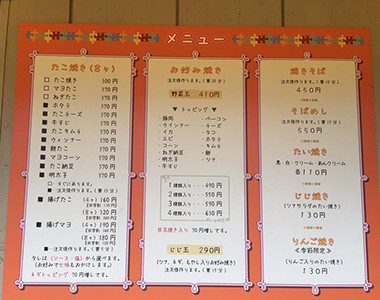 メニュー
たこ焼き(8ヶ)
□ たこ焼き 100円
□ マヨたこ 170円
□ ねぎたこ 170円
■ ホタテ 170円
■ たこチーズ 170円
■ 牛すじ 170円
■ たこキムチ 170円
■ ウィンナー 170円
■ 餅たこ 170円
■ マヨコーン 170円
■ たこ納豆 170円
■ 明太子 170円
□…すぐにあります。
■…注文後作ります。(要15分)
■ 揚げたこ (4ヶ) 160円
(8ヶ) 320円
■ 揚げマヨ (4ヶ) 190円
(8ヶ) 380円
■…注文後作ります。
タレは(ソース・塩)から選べます。
ネギトッピング 70円増しです。
お好み焼き
注文後作ります。(要20分)
野菜玉 410円
▼ トッピング ▼
・豚肉 ・ベーコン
・ウインナー ・チーズ
・イカ ・タコ
・エビ ・ホタテ
・コーン ・キムチ
・ねぎ納豆 ・餅
・明太子 ・ツナ
1種類入り…490円
2種類入り…550円
3種類入り…590円
4種類入り…630円
目玉焼き入り 70円増しです。
じじ玉 290円
(ツナ、ネギ、もやし入りお好み焼き)
注文後作ります。(要15分)
焼きそば
注文後作ります。(要15分)
450円
そばめし
注文後作ります。(要15分)
550円
たい焼き
黒・白・クリーム・あんクリーム
各110円
じじ焼き
(ツナサラダのたい焼き)
130円
りんご焼き
≪季節限定≫
(りんご入りのたい焼き)
130円